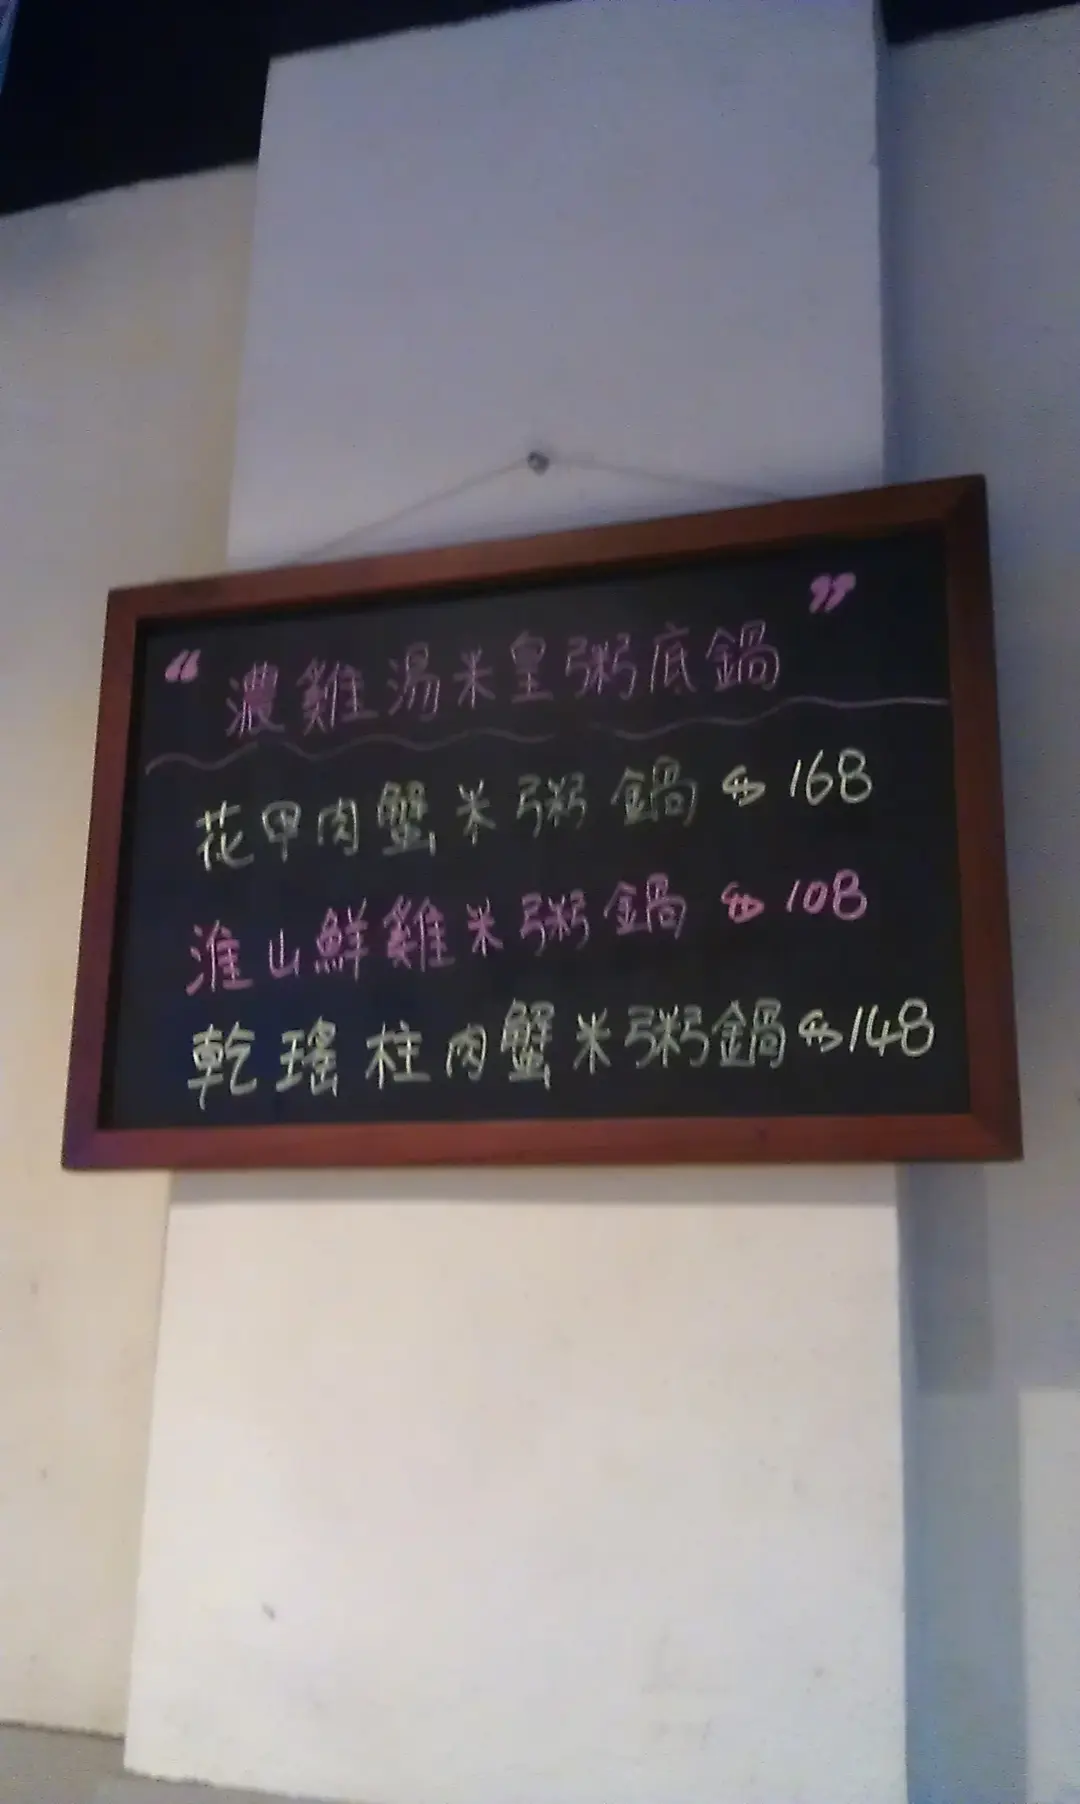 “濃雞湯米皇粥底鍋”
花甲肉蟹米粥鍋 $168
淮山鮮雞米粥鍋 $108
乾瑤柱肉蟹米粥鍋 $148